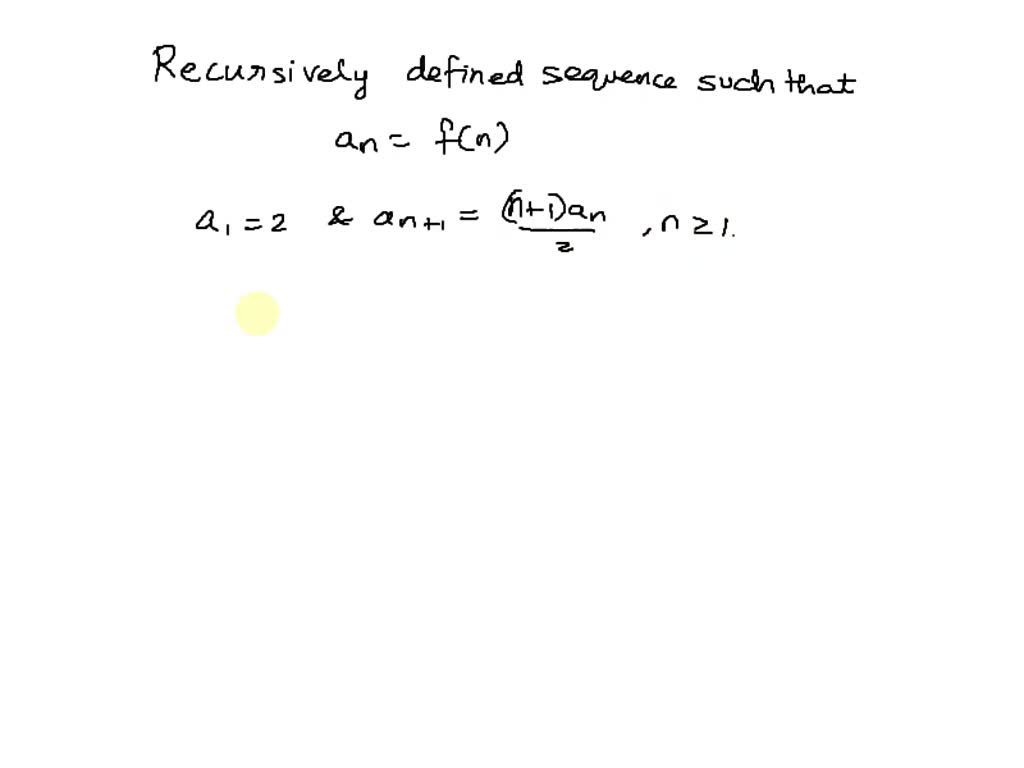 Recursively defined sequence such that
an = f(n)
a1 = 2 & an+1 = (n+1)an/2 , n ≥ 1.